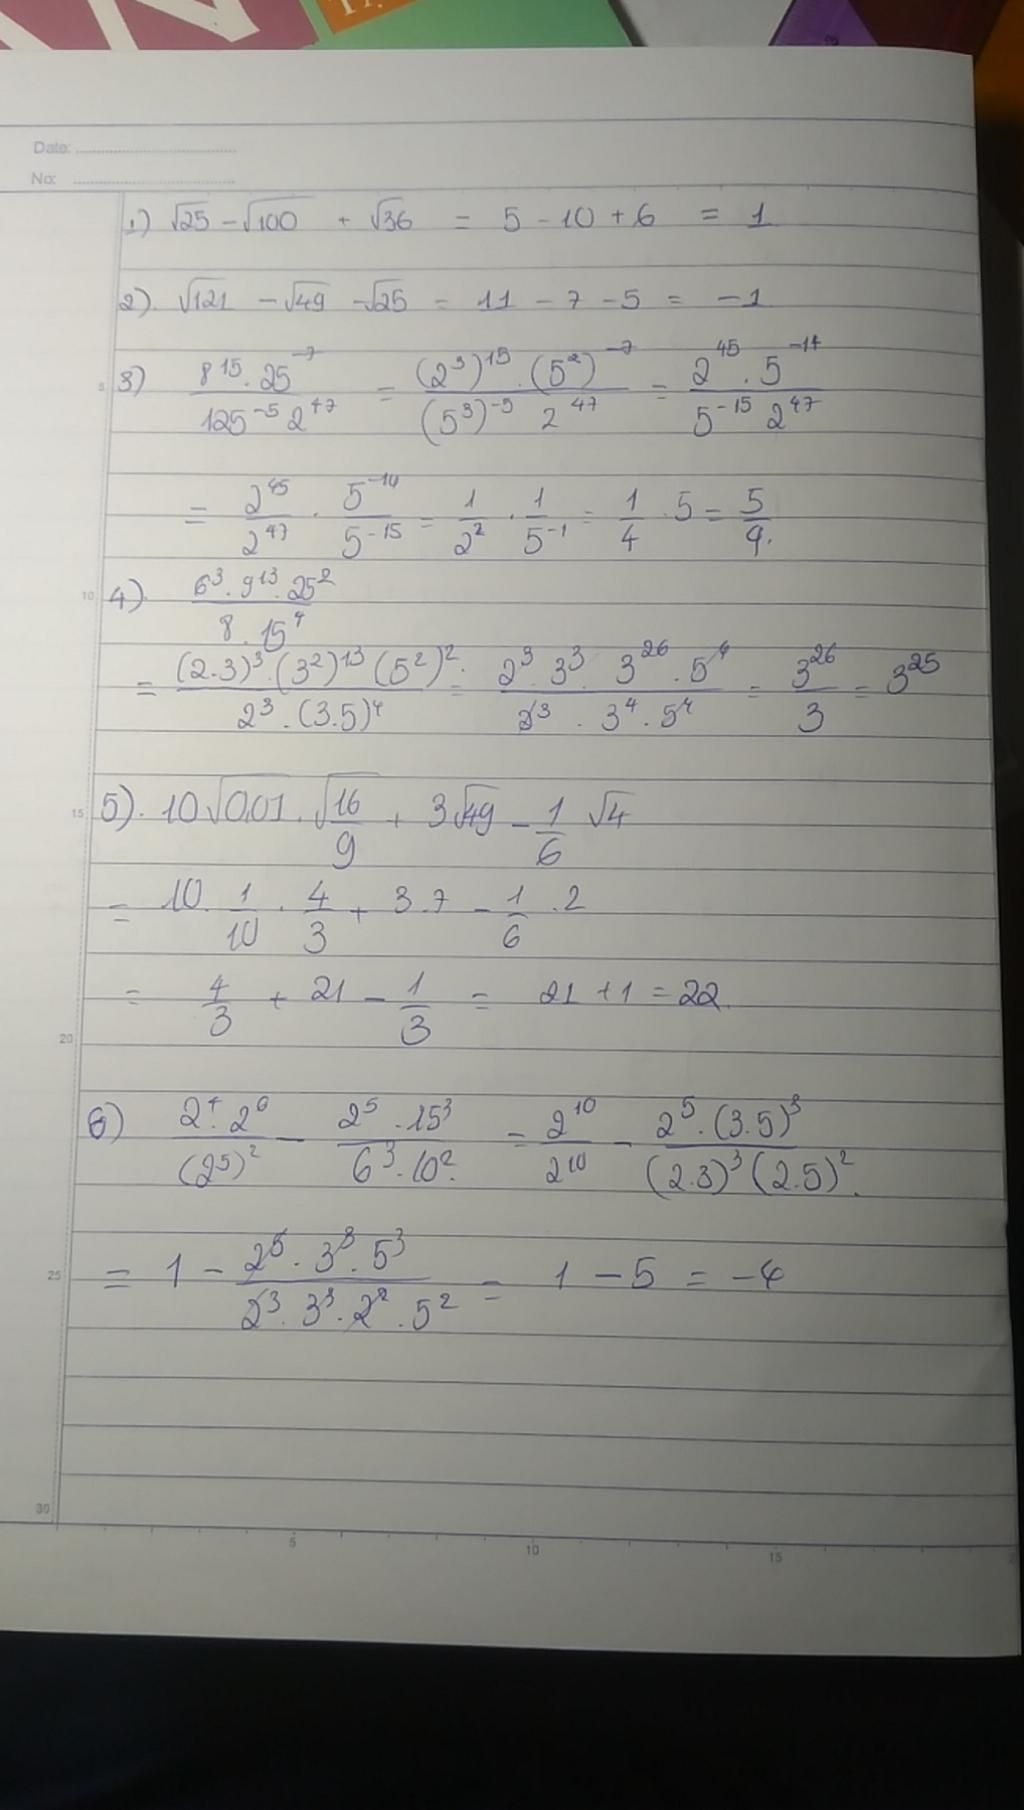 Date:
No:
1) √25 - √100 + √36 = 5 - 10 + 6 = 1
2). √121 - √49 - √25 = 11 - 7 - 5 = -1
3) (8^15 . 25^-7)/(125^-5 2^47) = ((2^3)^15 . (5^2)^-7)/((5^3)^-5 2^47) = (2^45 . 5^-14)/(5^-15 2^47)
= 2^45/2^47 . 5^-14/5^-15 = 1/2^2 . 1/5^-1 = 1/4 . 5 = 5/4.
4) (6^3 . 9^13 . 25^2)/(8 . 15^4)
= ((2.3)^3 . (3^2)^13 (5^2)^2)/(2^3 . (3.5)^4) = (2^3 . 3^3 . 3^26 . 5^4)/(2^3 . 3^4 . 5^4) = 3^26/3 = 3^25
5). 10√0,01 . √16/9 + 3√49 - 1/6 √4
= 10 . 1/10 . 4/3 + 3.7 - 1/6 . 2
= 4/3 + 21 - 1/3 = 21 + 1 = 22
6) (2^4 . 2^6)/(2^5)^2 - (2^5 . 15^3)/(6^3 . 10^2) = 2^10/2^10 - (2^5 . (3.5)^3)/((2.3)^3 (2.5)^2)
= 1 - (2^5 . 3^3 . 5^3)/(2^3 . 3^3 . 2^2 . 5^2) = 1 - 5 = -4
5
10
15
20
25
30
5
10
15